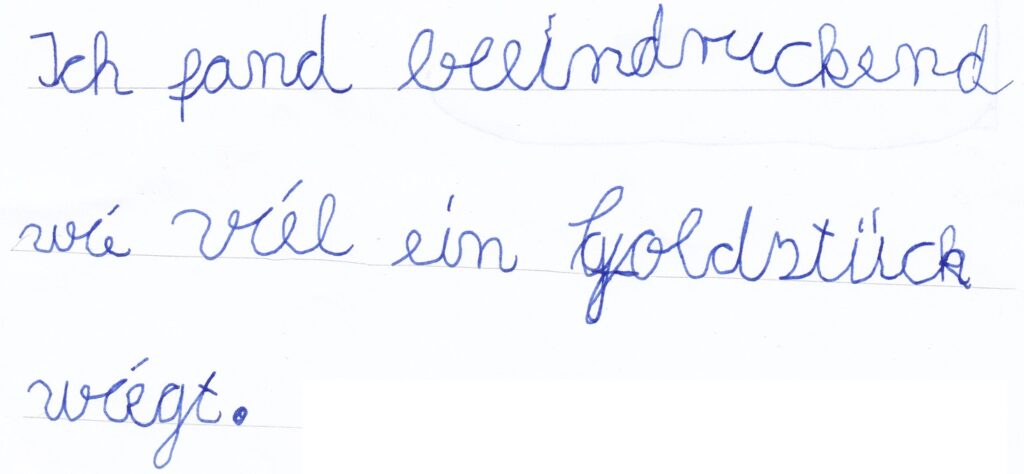 Ich fand beeindruckend
wie viel ein Goldstück
wiegt.